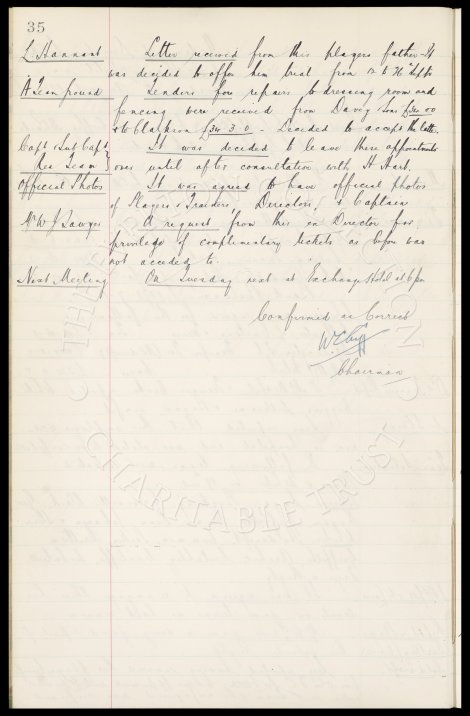 35
L Hannant Letter received from this players father. It
was decided to offer him trial from 12 to 26 Septr
A Team ground Tenders for repairs to dressing room and
fencing were received from Davey Sons £34.0.0
& to Clarkson £34 3.0. Decided to accept the latter.
Capt & Sub Capt It was decided to leave these appointments
Res Team over until after consultation with H Hart.
Official Photos It was agreed to have official photos
of Players & Traiders, Directors, & Captain
Mr W J Sawyer A request from this ex Director for
privilege of complimentary tickets as before was
not acceded to.
Next Meeting On Tuesday next at Exchange Hotel at 6 pm
Confirmed as Correct
W C Cuff
Chairman
CHARITABLE TRUST